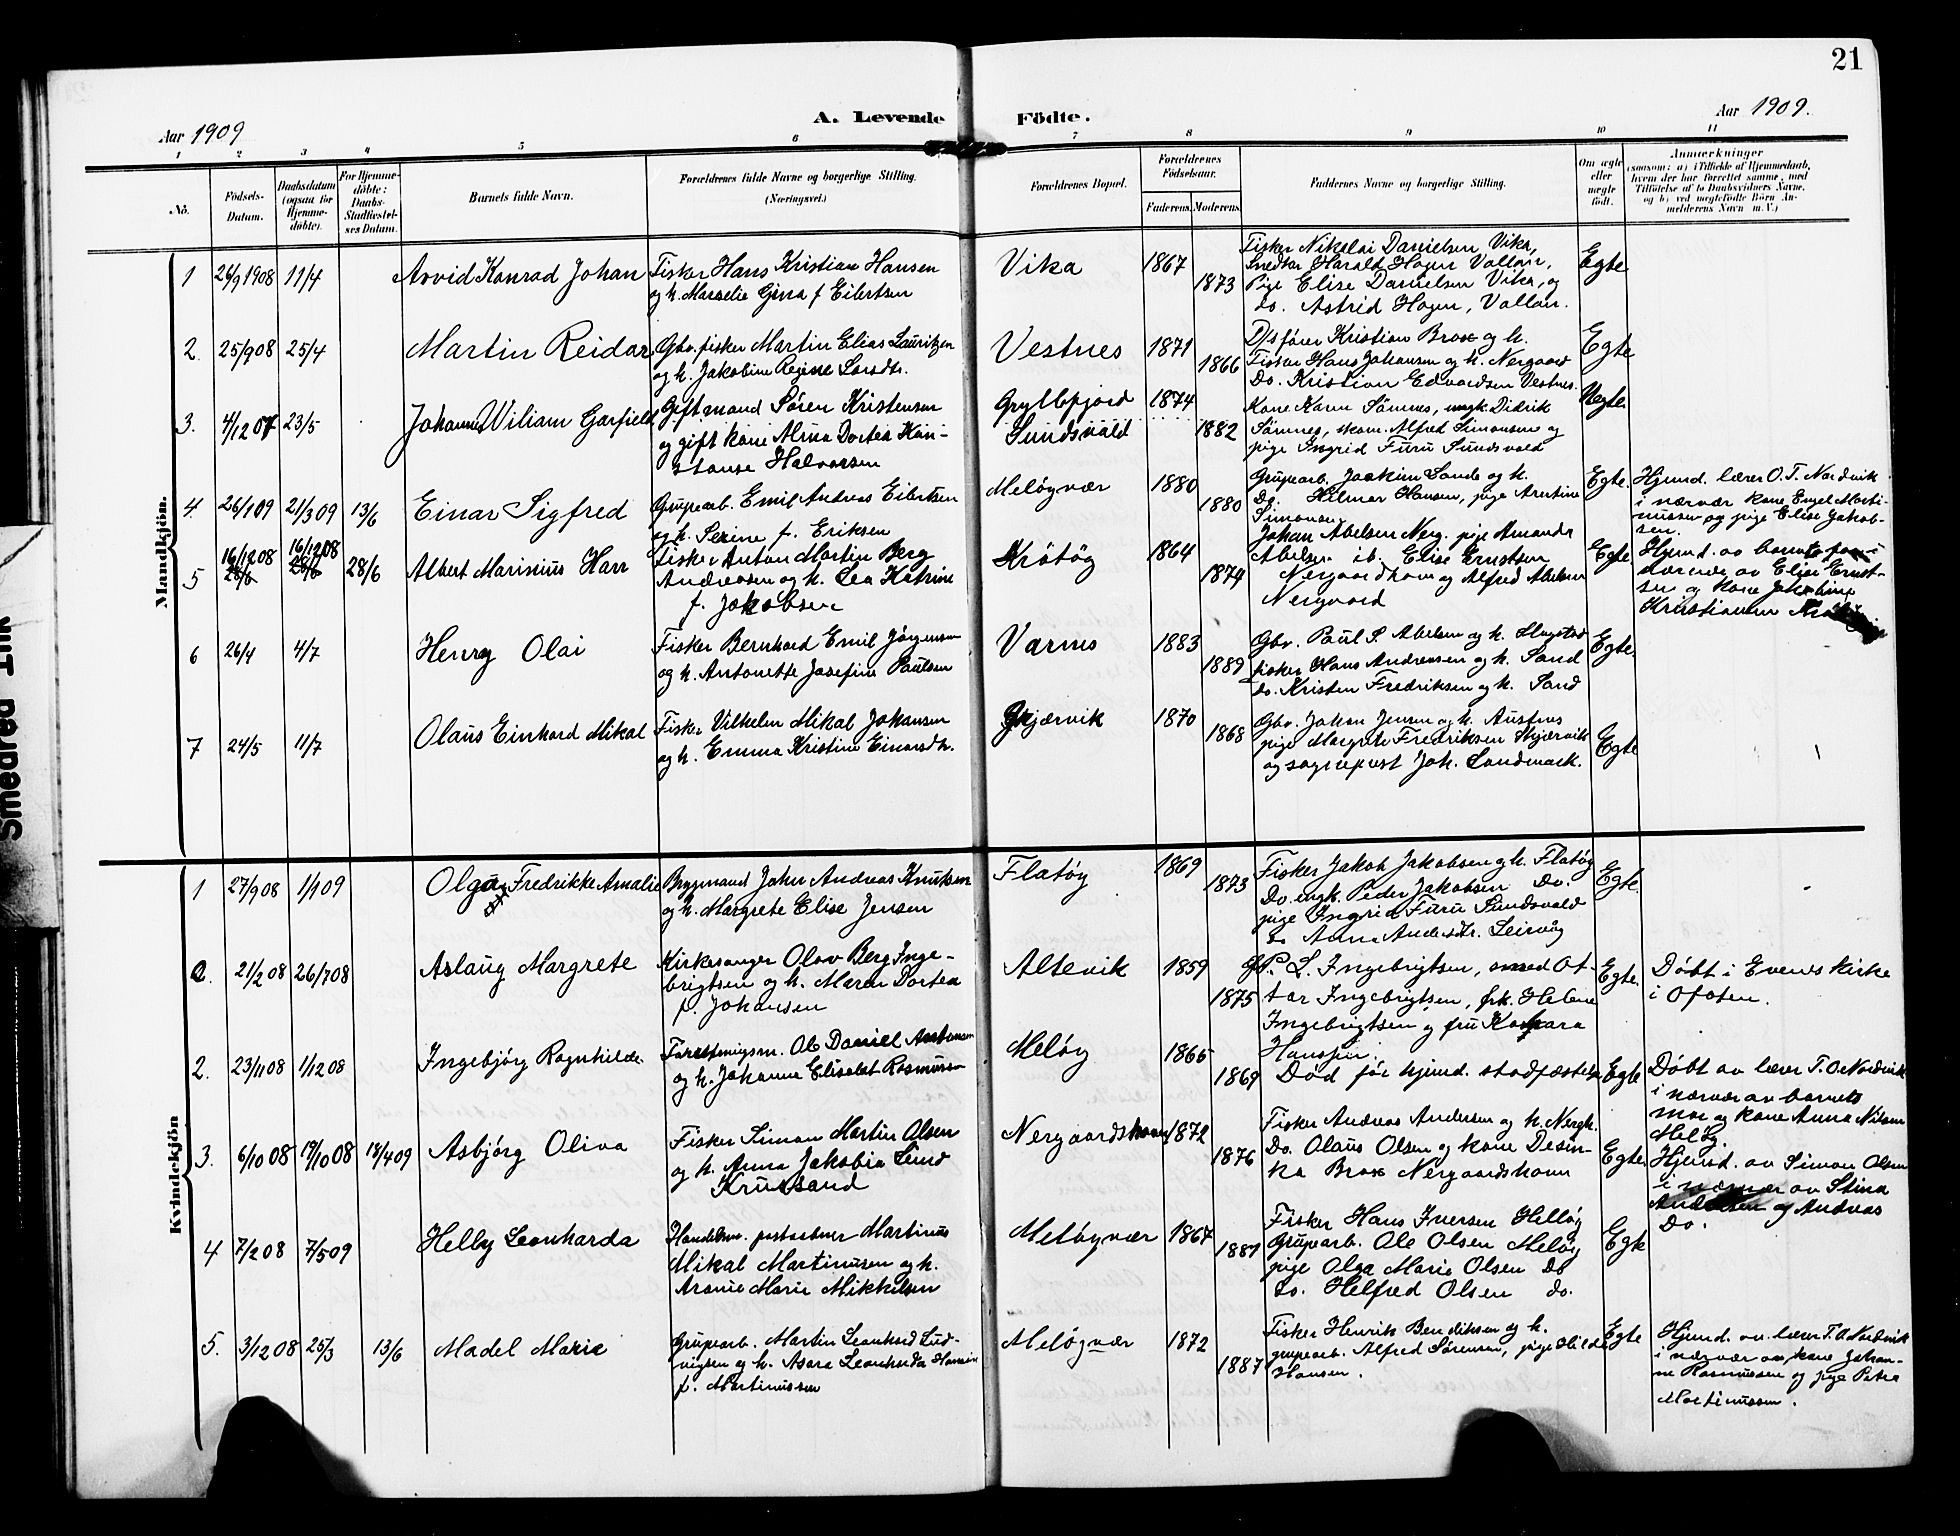 21
A. Levende Födte.
Aar 1909
Aar 1909.
1 2 3 4 5 6 7 8 9 10 11
No.
Födsels-
Datum.
Daabsdatum
(ogsaa for
Hjemme-
döbte).
For Hjemme-
döbte:
Daabs-
Stadfæstel-
ses Datum.
Barnets fulde Navn.
Forældrenes fulde Navne og borgerlige Stilling.
(Næringsvei.)
Forældrenes Bopæl.
Forældrenes
Födselsaar.
Faderens. Moderens.
Faddernes Navne og borgerlige Stilling.
Om ægte
eller
uægte
födt.
Anmærkninger
(saasom: a) i Tilfælde af Hjemmedaab,
hvem der har forrettet samme, med
Tilföielse af to Daabsvidners Navne,
og b) ved uægtefödte Börn An-
melderens Navn m. V.)
Mandkjön.
1 26/9 1908 11/4 Arvid Konrad Johan
Fisker Hans Kristian Hansen
og h. Marselie Gina f Eilertsen
Vika 1867 1873
Fisker Nikolai Danielsen Vika,
Snedker Harald Hogen Vollan,
Pige Elise Danielsen Vika, og
do. Astrid Hogen, Vollan.
Egte
2. 25/9 08 25/4 Martin Reidar
Gbr. fisker Martin Elias Lauritzen
og h. Jakobine Regine Larsdtr.
Vestnes 1871 1866
Dsfører Kristian Brox og h.
Fisker Hans Johansen og h. Nergaard
Do. Kristian Edvardsen Vestnes.
Egte
3. 4/12 07 23/5 Johannes Wiliam Garfield
Gift mand Søren Kristensen
og gift kone Alma Dortea Kon-
stanse Halvorsen
Gryllefjord
Sundsvald
1874 1882
Kone Karen Sømnes, ungk. Didrik
Sømnes, skom. Alfred Simonsen og
pige Ingrid Furu Sundsvald
Uegte.
4. 26/1 09 21/3 09 13/6 Einar Sigfred
Grupearb. Emil Andreas Eilertsen
og h. Serine f. Eriksen
Meløyvær 1880 1880
Grupearb. Joakim Sande og h.
Do. Hilmar Hansen, pige Arntine
Simonsen
Egte.
Hjemd. lærer O. T. Nordvik
i nærvær kone Engel Marti-
nussen og pige Elise Jakob-
sen.
5 16/12 08 28/6 16/12 08 28/6 28/6 Albert Marinius Harr
Fisker Anton Martin Berg
Andreassen og h. Lea Katrine
f. Jakobsen
Krøtøy 1864 1874
Johan Abelsen Nerg. pige Amanda
Abelsen ib. Elise Ernstsen
Nergaardhavn og Alfred Abelsen
Nergaard
Egte
Hjemd. av barnets far i
nærvær av Elise Ernst-
sen og kone Jakobine
Kristiansen
6 26/4 4/7 Henry Olai
Fisker Bernhard Emil Jørgensen
og h. Antonette Josefine Paulsen
Varnes 1883 1889
Gbr. Paul P. Abelsen og h.
fisker Hans Andreassen og h. Sand
do. Kristen Fredriksen og h. Sand
Egte.
7 24/5 11/7 Olaus Einhard Mikal
Fisker Vilhelm Mikal Johansen
og h. Emma Kristine Einarsdtr.
Skjærvik 1870 1868
Gbr. Johan Jensen og h. Austnes
pige Margrete Fredriksen Skjærvik
og sogneprest Joh. Landmark.
Egte
Kvindekjön
1 27/9 08 1/1 09 Olga Fredrikke Amalie
Brygmand Johan Andreas Knutsen
og h. Margrete Elise Jensen
Flatøy 1869 1873
Fisker Jakob Jakobsen og h. Flatøy
Do. ungk. Peder Jakobsen Do.
pige Ingrid Furu Sundsvald
do Anna Andersdtr. Leirvåg
Egte.
2. 21/2 08 26/7 08 Aslaug Margrete
Kirkesanger Olav Berg Inge-
brigtsen og h. Maren Dortea
f. Johansen
Altevik 1859 1875
P. L. Ingebrigtsen, smed Ot-
tar Ingebrigtsen, frk. Helene
Ingebrigtsen og fru Kaspara
Hanssen.
Egte.
Døbt i Evenes kirke
i Ofoten.
2. 23/11 08 1/12 08 Ingebjørg Ragnhilde
Forretningsm. Ole Daniel
og h. Johanna Elisabet Rasmussen
Meløy 1865 1869
Død før hjemd. stadfæstelse
Egte
Døbt av lærer T. O. Nordvik
i nærvær av barnets
mor og kone Anna Nilsen
Meløy.
3. 6/10 08 19/10 08 18/4 09 Asbjørg Oliva
Fisker Simon Martin Olsen
og h. Anna Jakobia Lund
Krussand
Nergaardshavn 1872 1876
Fisker Andreas Andersen og h. Nergh.
Do. Olaus Olsen og kone Desin-
ka Brox Nergaardshavn
Egte.
Hjemd. av Simon Olsen
i nærvær av Stina
Andersen og Andreas
Do.
4 7/2 08 7/5 09 Helly Leonharda
Handelsm. postaabner Martinus
Mikal Martinussen og h.
Aronie Marie Mikkelsen
Meløyvær 1867 1881
Fisker Hans Iversen Helløy
Grupearb. Ole Olsen Meløy
pige Olga Marie Olsen Do
do. Helfred Olsen do.
Egte
5. 3/12 08 25/3 13/6 Madel Marie
Grupearb. Martin Leonhard Lud-
vigsen og h. Asara Leonharda Hansen
f. Martinussen
Meløyvær 1872 1887
Fisker Henrik Bendiksen og h.
grupearb. Alfred Sørensen, pige Hilda
Hansen.
Egte
Hjemd. av lærer T. O Nordvik
i nærvær av kone Johan-
ne Rasmussen og pige Petra
Martinussen.
Smedrød